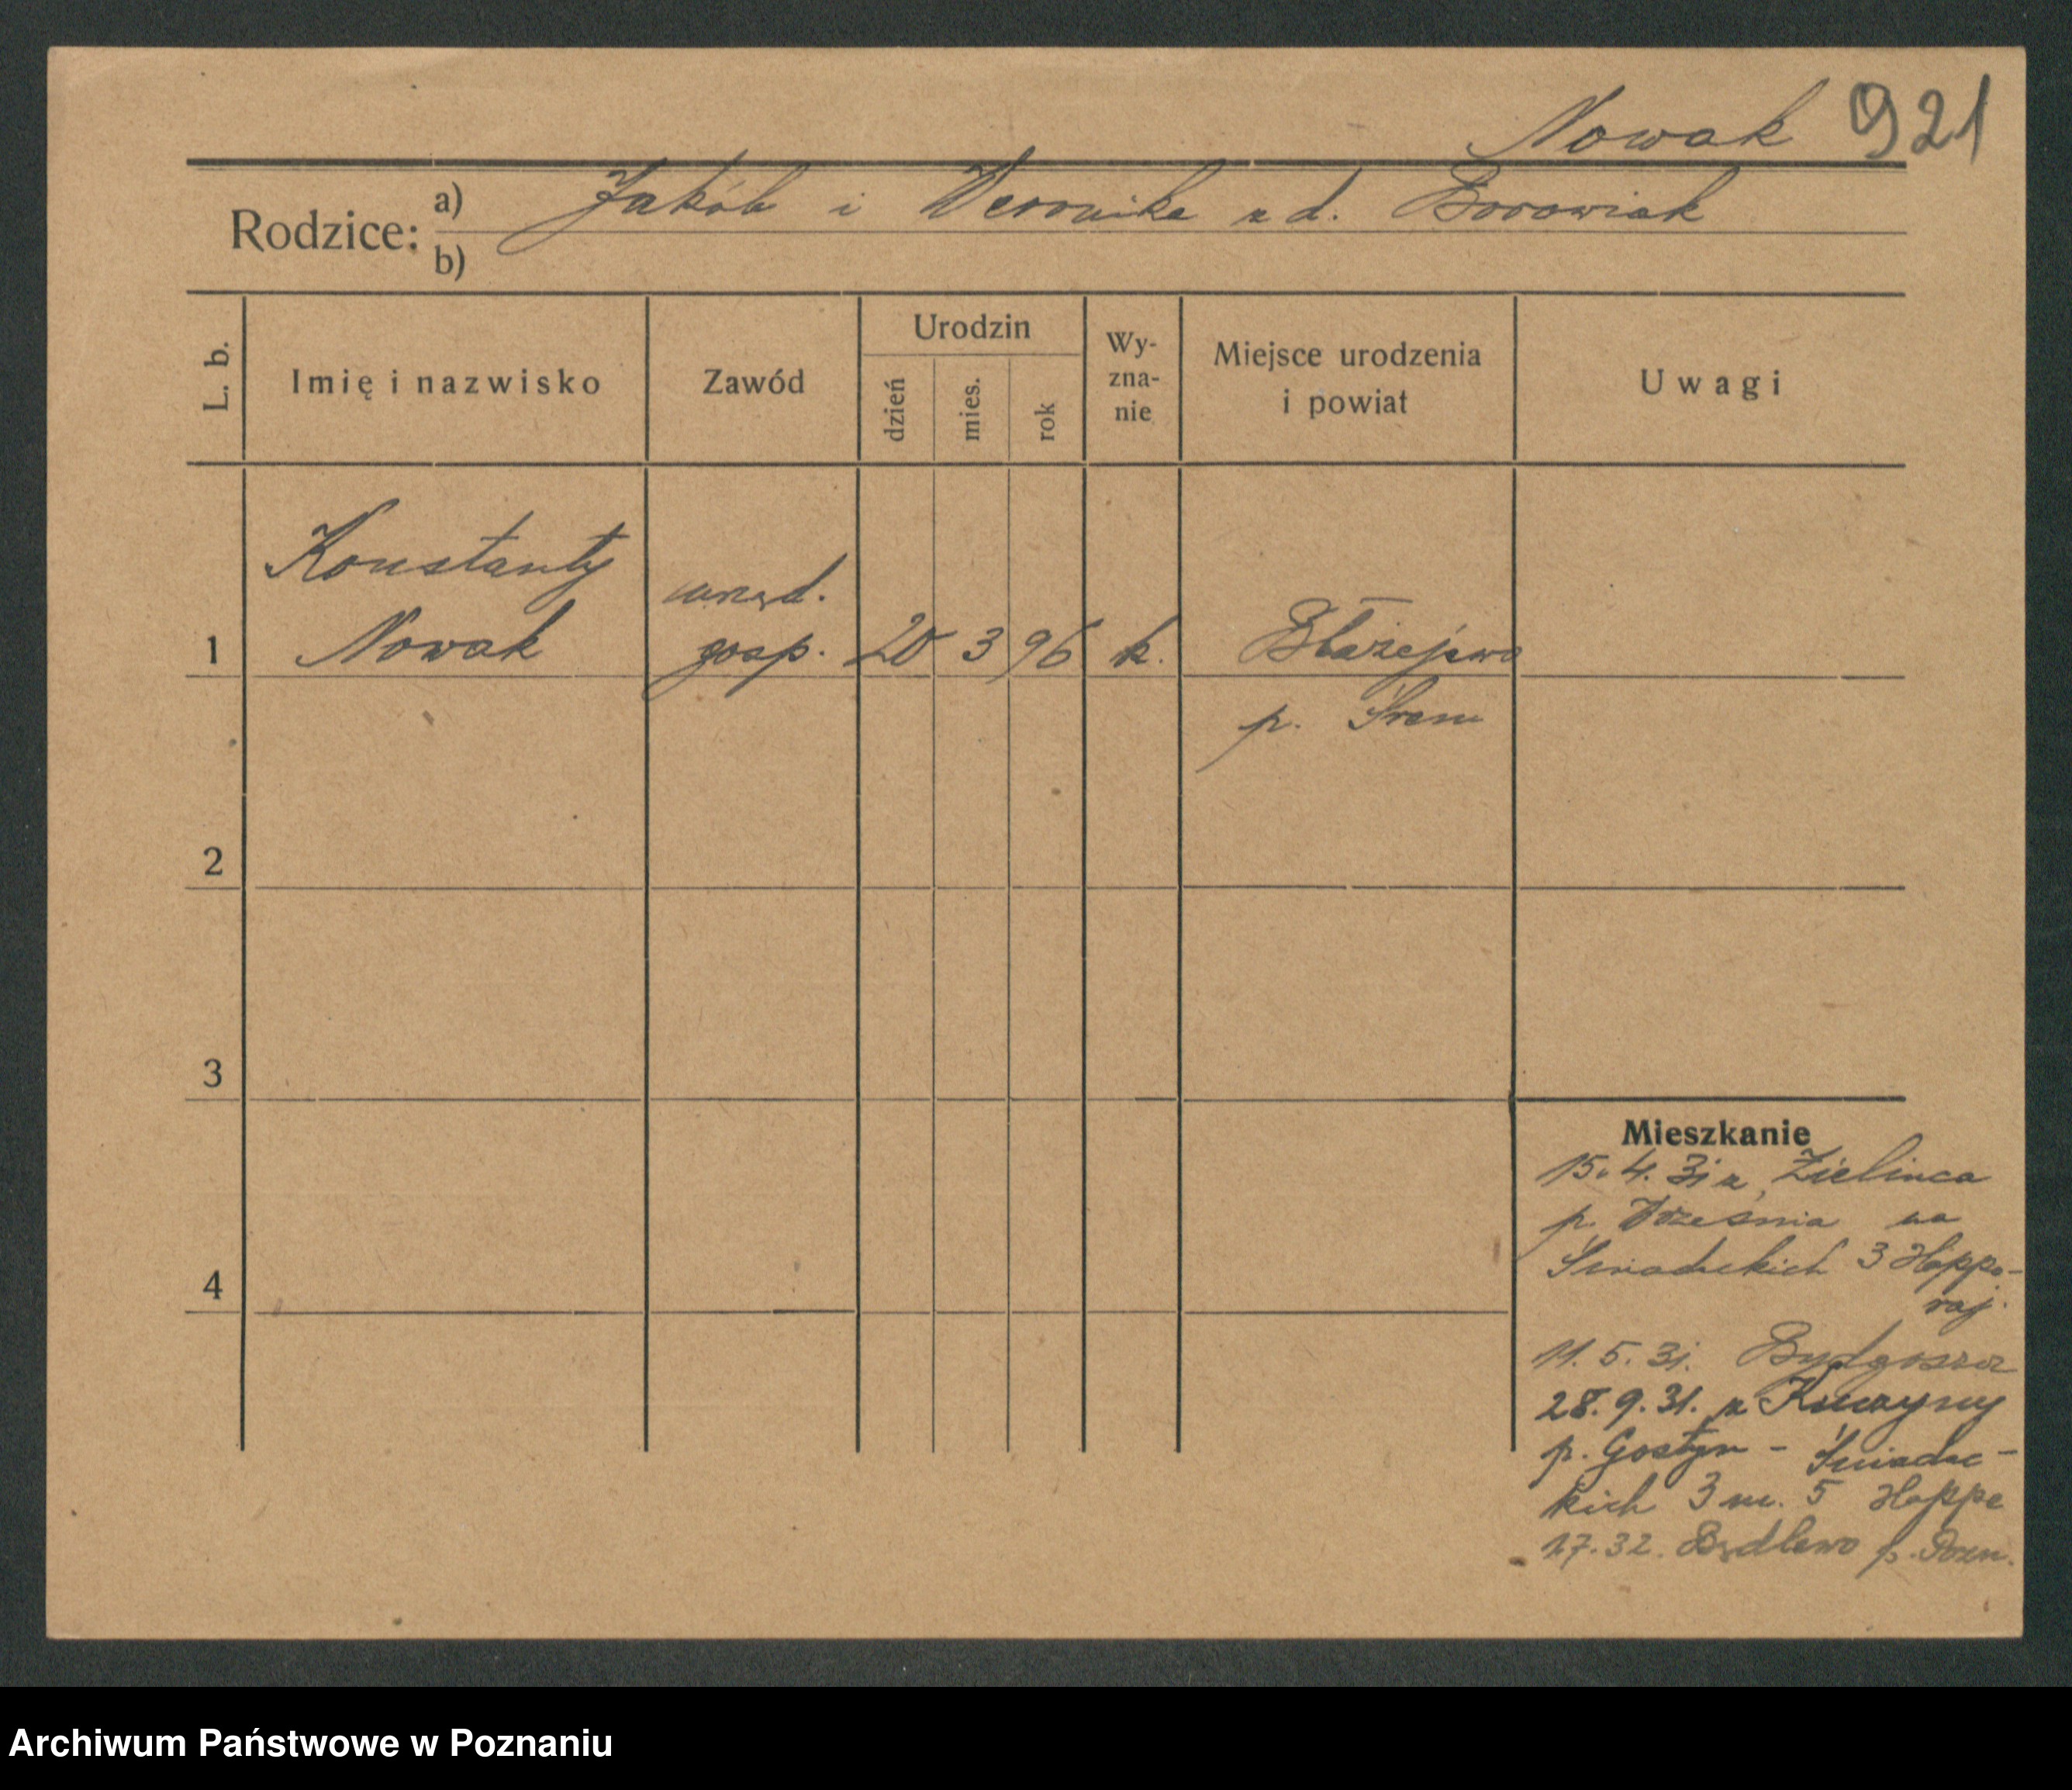 Nowak 921
Rodzice: a) Jakób i Weronika z d. Borowiak
b)
L. b.
Imię i nazwisko
Zawód
Urodzin
dzień
mies.
rok
Wy-
zna-
nie
Miejsce urodzenia
i powiat
Uwagi
Konstanty
urzęd.
1 Nowak gosp. 20 3 96 k. Błażejewo
p. Śrem
2
3
4
Mieszkanie
15.4.31 z Zielińca
p. Września na
Śniadeckich 3 Hoppe-
11.5.31. Bydgoszcz
28.9.31. z
p. Gostyń - Śniadec-
kich 3 m. 5 Hoppe
1.7.32. Będlewo p. Pozn.
Archiwum Państwowe w Poznaniu